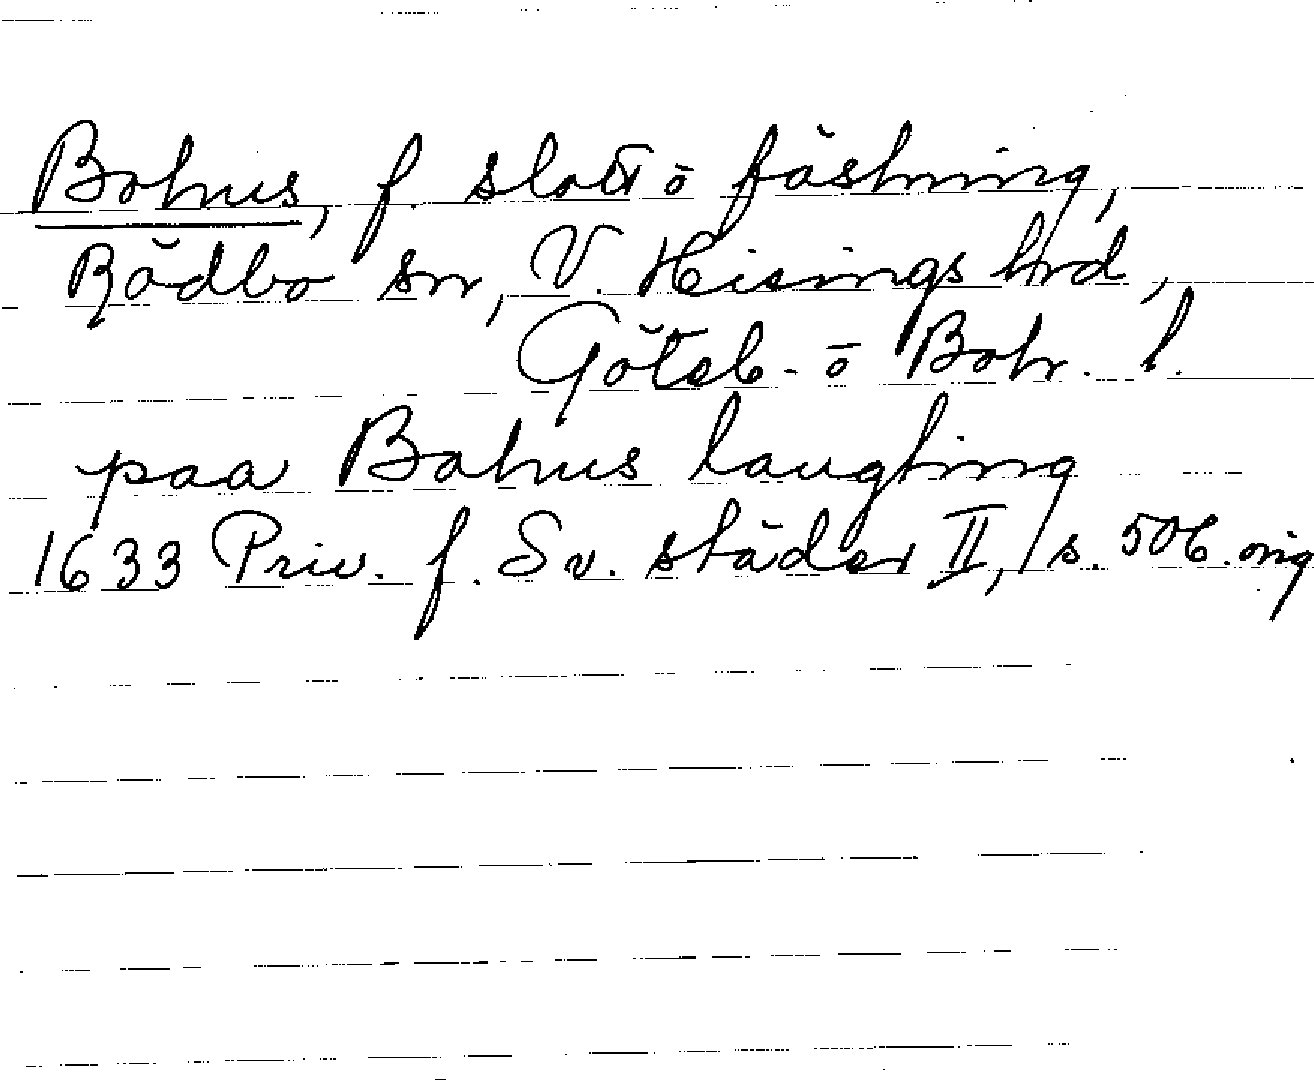 Bohus, f. slott o fästning,
Rödbo sn, V. Hisings hrd,
Göteb. - o Boh. l.
paa Bahus laugting
1633 Priv. f. Sv. städer II, s. 506. orig